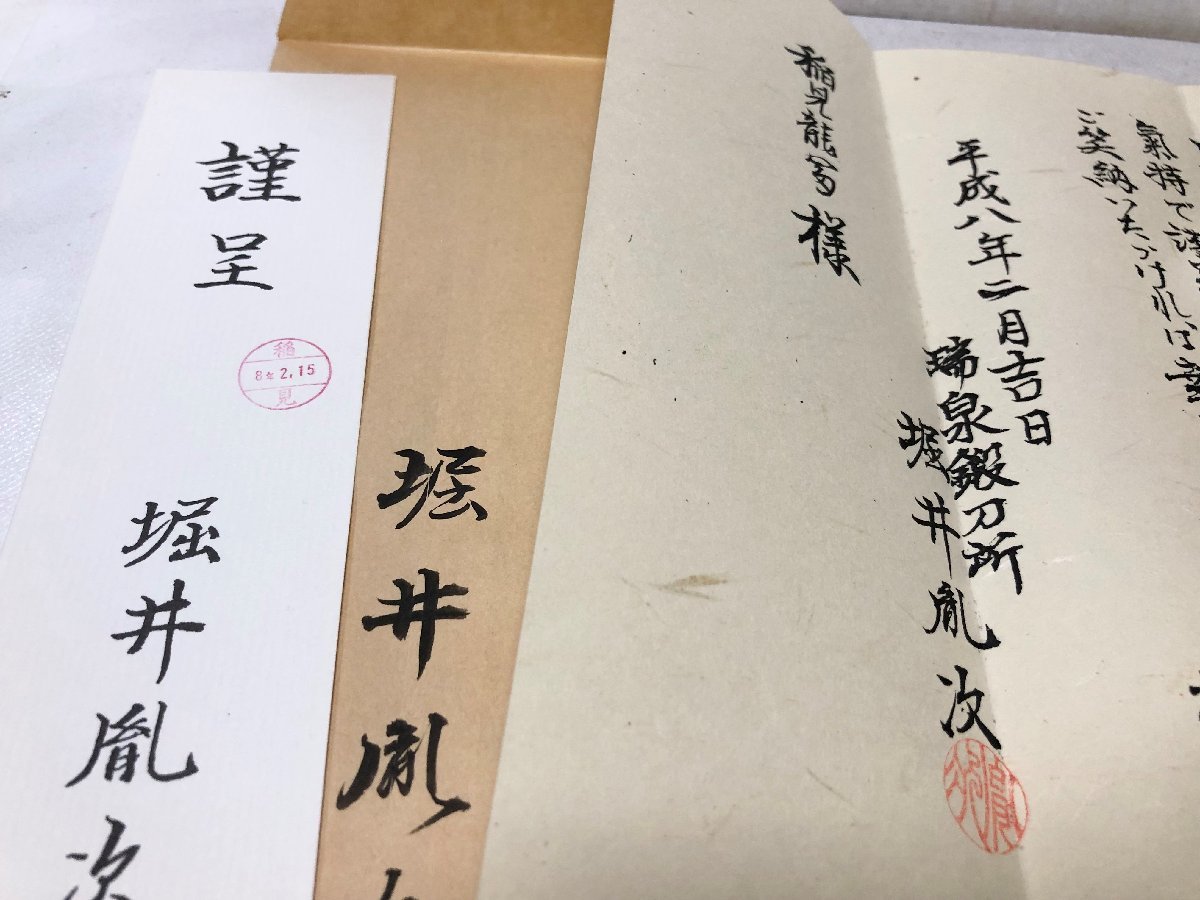 謹呈
稲
8年2.15
見
堀井胤次
堀井胤
氣持で謹
ご笑納いただければ幸
平成八年二月吉日
瑞泉鍛刀所
堀井胤次
稲見
様